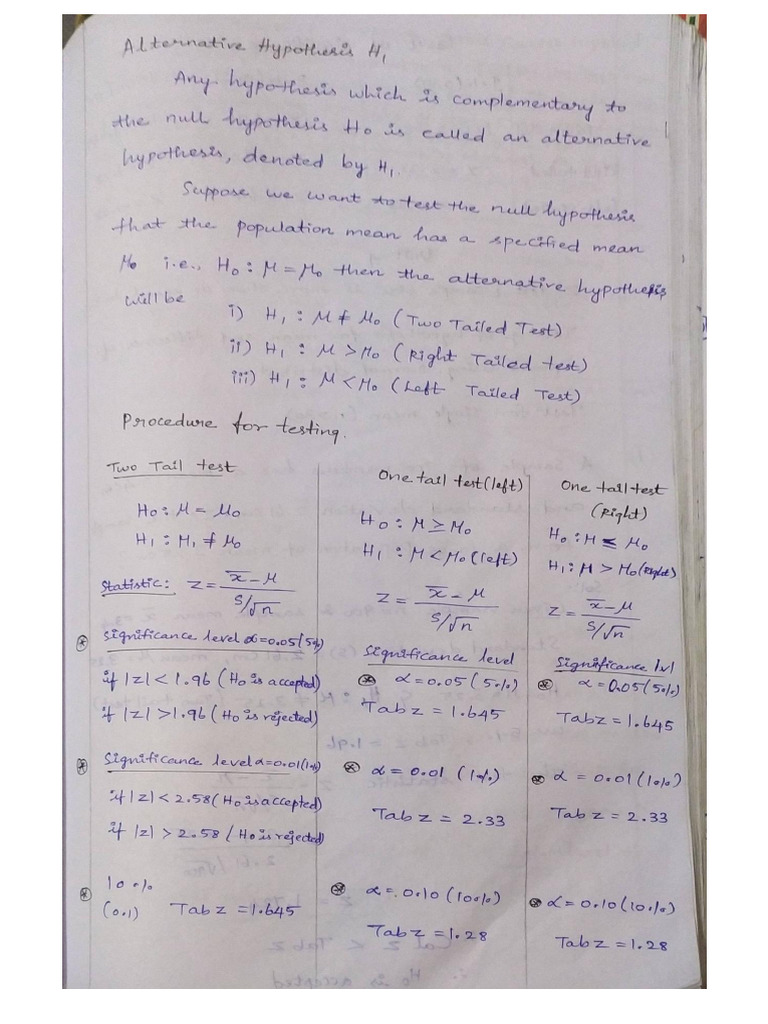 Alternative Hypothesis H₁
Any hypothesis which is complementary to
the null hypothesis H₀ is called an alternative
hypothesis, denoted by H₁.
Suppose we want to test the null hypothesis
that the population mean has a specified mean
μ₀ i.e., H₀ : μ = μ₀ then the alternative hypothesis
will be
i) H₁ : μ ≠ μ₀ (Two Tailed Test)
ii) H₁ : μ > μ₀ (Right Tailed test)
iii) H₁ : μ < μ₀ (Left Tailed Test)
Procedure for testing.
Two Tail test
H₀ : μ = μ₀
H₁ : μ₁ ≠ μ₀
Statistic: z = x̄ - μ / S/√n
Significance level α = 0.05 (5%)
if |z| < 1.96 (H₀ is accepted)
if |z| > 1.96 (H₀ is rejected)
Significance level α = 0.01 (1%)
if |z| < 2.58 (H₀ is accepted)
if |z| > 2.58 (H₀ is rejected)
10%
(0.1) Tab z = 1.645
One tail test (left)
H₀ : μ ≥ μ₀
H₁ : μ < μ₀ (left)
z = x̄ - μ / S/√n
Significance level
α = 0.05 (5%)
Tab z = 1.645
α = 0.01 (1%)
Tab z = 2.33
α = 0.10 (10%)
Tab z = 1.28
One tail test
(Right)
H₀ : μ ≤ μ₀
H₁ : μ > μ₀ (Right)
z = x̄ - μ / S/√n
Significance lvl
α = 0.05 (5%)
Tab z = 1.645
α = 0.01 (1%)
Tab z = 2.33
α = 0.10 (10%)
Tab z = 1.28